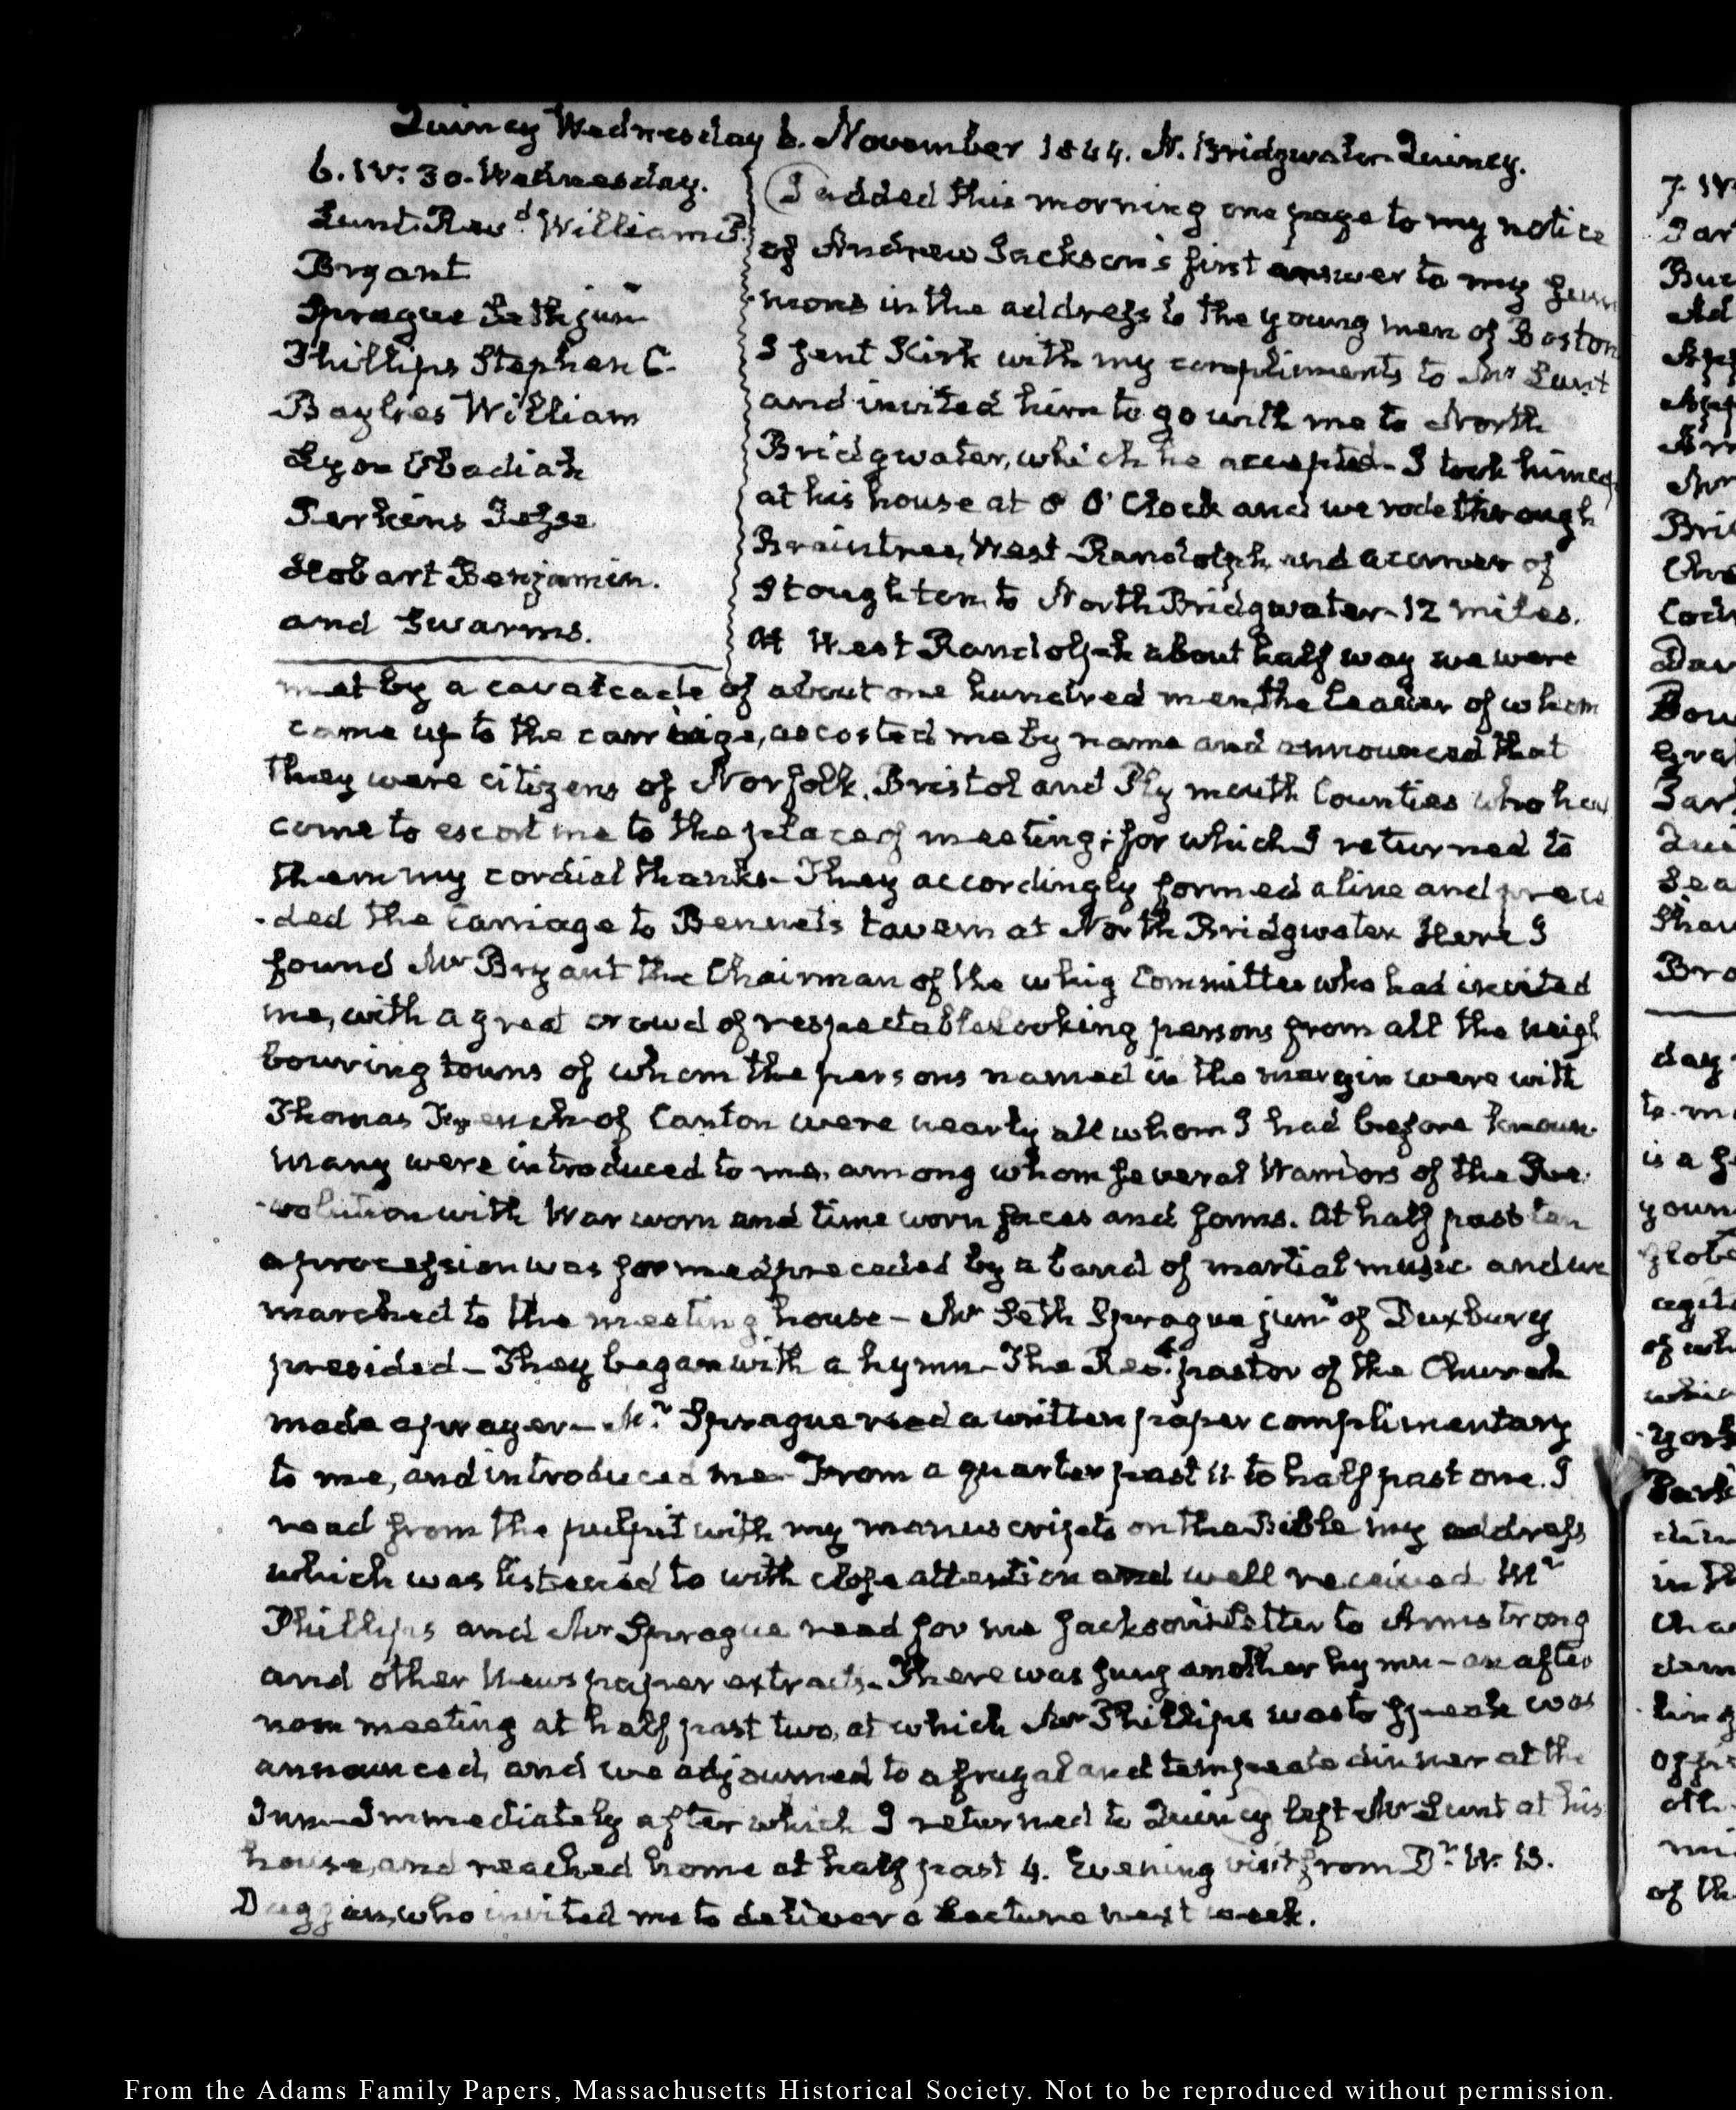 Quincy Wednesday 6. November 1844. N. Bridgwater. Quincy.
6. IV: 30. Wednesday.
Lunt. Revd. William P.
Bryant
Sprague Seth junr
Phillips Stephen C.
Baylies William
Lyon Obadiah
Perkins Jesse
Hobart Benjamin.
and Swarms.
I added this morning one page to my notice
of Andrew Jackson's first answer to my sum
mons in the address to the young men of Boston
I sent Kirk with my compliments to Mr Lunt
and invited him to go with me to North
Bridgwater, which he accepted. I took him up
at his house at 8 O'Clock and we rode through
Braintree, West Randolph, and a corner of
Stoughton to North Bridgwater. 12 miles.
At West Randolph about half way we were
met by a cavalcade of about one hundred men, the leader of whom
came up to the carriage, accosted me by name and announced that
they were citizens of Norfolk, Bristol and Plymouth Counties who had
come to escort me to the place of meeting; for which I returned to
them my cordial thanks. They accordingly formed a line and prece
-ded the carriage to Bennet's tavern at North Bridgwater. Here I
found Mr Bryant the Chairman of the whig Committee who had invited
me, with a great crowd of respectable looking persons from all the neigh
bouring towns of whom the persons named in the margin were with
Thomas French of Canton were nearly all whom I had before known.
many were introduced to me, among whom several Warriors of the Re-
-volution with War worn and time worn faces and forms. At half past ten
a procession was formed preceded by a band of martial music and we
marched to the meeting house – Mr Seth Sprague junr of Duxbury
presided – They began with a hymn – The Revd. pastor of the Church
made a prayer – Mr. Sprague read a written paper complimentary
to me, and introduced me. From a quarter past 11 to half past one. I
read from the pulpit with my manuscripts on the Bible my address
which was listened to with close attention and well received. Mr
Phillips and Mr Sprague read for me Jackson's letter to Armstrong
and other Newspaper extracts. There was sung another hymn – an after
noon meeting at half past two, at which Mr Phillips was to speak was
announced, and we adjourned to a frugal and temperate dinner at the
Inn – Immediately after which I returned to Quincy left Mr Lunt at his
house, and reached home at half past 4. Evening visit from Dr. W. B.
Duggan, who invited me to deliver a Lecture next week.
From the Adams Family Papers, Massachusetts Historical Society. Not to be reproduced without permission.